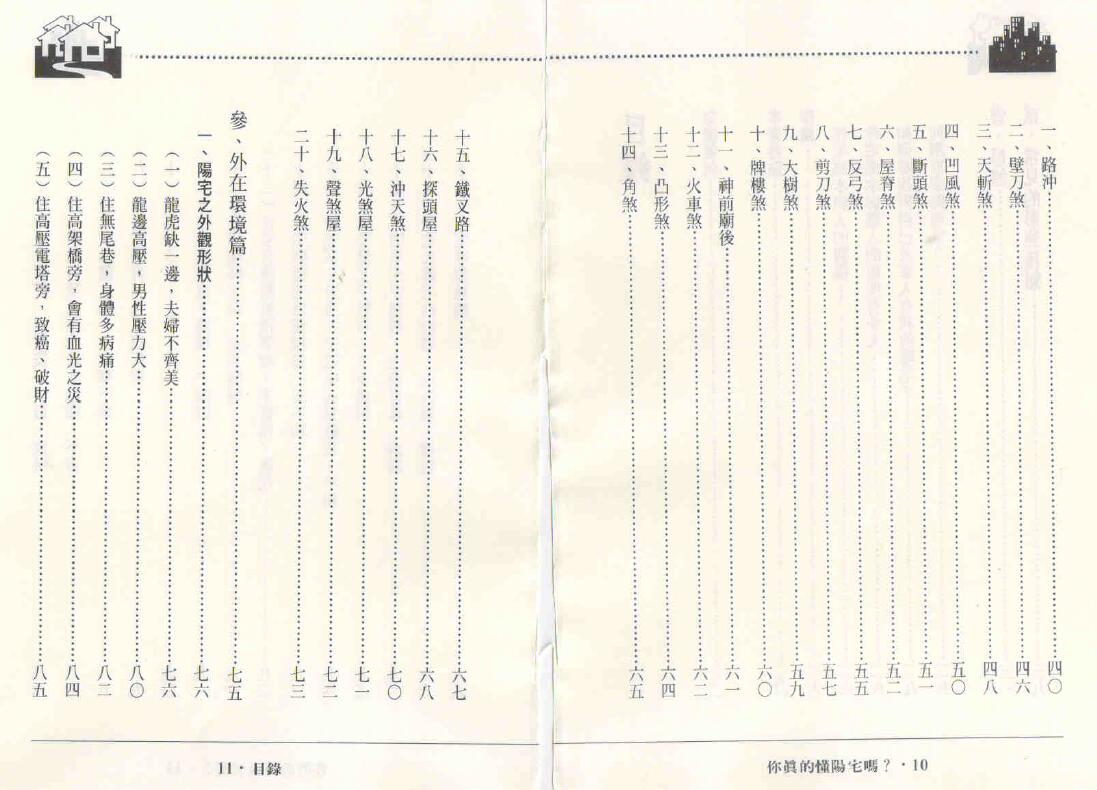 一、路沖⋯⋯四〇
二、壁刀煞⋯⋯四六
三、天斬煞⋯⋯四八
四、凹風煞⋯⋯五〇
五、斷頭煞⋯⋯五一
六、屋脊煞⋯⋯五二
七、反弓煞⋯⋯五五
八、剪刀煞⋯⋯五七
九、大樹煞⋯⋯五九
十、牌樓煞⋯⋯六〇
十一、神前廟後⋯⋯六一
十二、火車煞⋯⋯六二
十三、凸形煞⋯⋯六四
十四、角煞⋯⋯六五
你眞的懂陽宅嗎？·10
十五、鐵叉路⋯⋯六七
十六、探頭屋⋯⋯六八
十七、沖天煞⋯⋯七〇
十八、光煞屋⋯⋯七一
十九、聲煞屋⋯⋯七二
二十、失火煞⋯⋯七三
參、外在環境篇⋯⋯七五
一、陽宅之外觀形狀⋯⋯七六
（一）龍虎缺一邊，夫婦不齊美⋯⋯七六
（二）龍邊高壓，男性壓力大⋯⋯八〇
（三）住無尾巷，身體多病痛⋯⋯八二
（四）住高架橋旁，會有血光之災⋯⋯八四
（五）住高壓電塔旁，致癌、破財⋯⋯八五
11·目錄